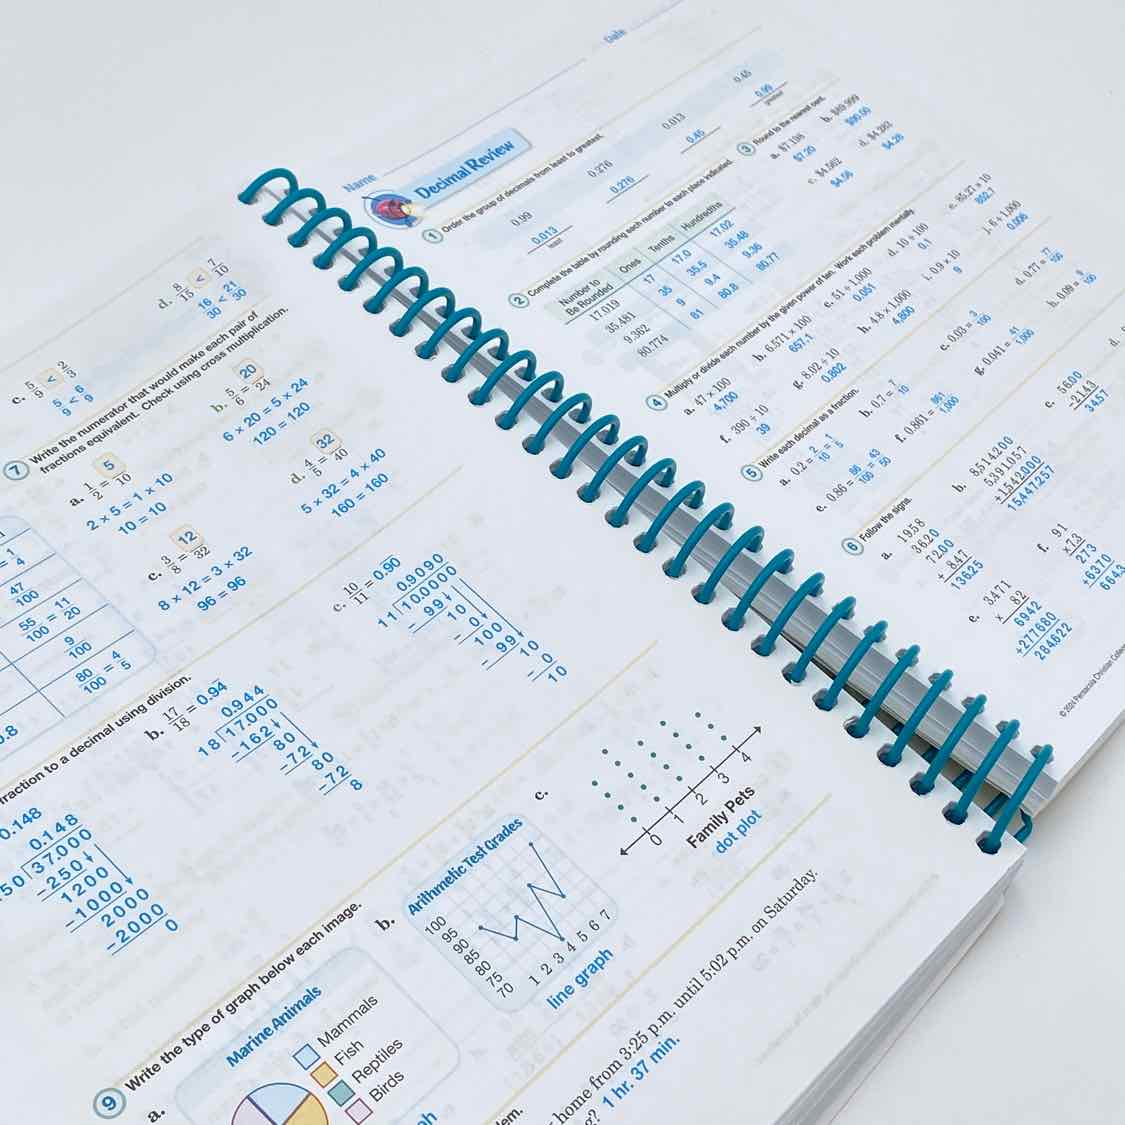 d. 8/15 < 7/10
16/30 < 21/30
c. 5/9 < 2/3
5/9 < 6/9
7 Write the numerator that would make each pair of
fractions equivalent. Check using cross multiplication.
a. 1/2 = 5/10
2 × 5 = 1 × 10
10 = 10
b. 5/6 = 20/24
6 × 20 = 5 × 24
120 = 120
c. 3/8 = 12/32
8 × 12 = 3 × 32
96 = 96
d. 4/5 = 32/40
5 × 32 = 4 × 40
160 = 160
1/4
47/100
55/100 = 11/20
9/100
80/100 = 4/5
fraction to a decimal using division.
0.148
0.148
37.000
-250
1200
-1000
2000
-2000
0
b. 17/18 = 0.94
0.944
18 17.000
-162
80
-72
80
-72
8
c. 10/11 = 0.90
0.9090
11 10.0000
-99
10
-0
100
-99
10
-0
10
9 Write the type of graph below each image.
a.
Marine Animals
Mammals
Fish
Reptiles
Birds
b.
Arithmetic Test Grades
100
95
90
85
80
75
70
1 2 3 4 5 6 7
line graph
c.
0 1 2 3 4
Family Pets
dot plot
home from 3:25 p.m. until 5:02 p.m. on Saturday.
1 hr. 37 min.
Name
Date
Decimal Review
1 Order the group of decimals from least to greatest.
0.99 0.276 0.013 0.45
0.013 0.276 0.45 0.99
least greatest
2 Complete the table by rounding each number to each place indicated.
Number to
Be Rounded Ones Tenths Hundredths
17.019 17 17.0 17.02
35.481 35 35.5 35.48
9.362 9 9.4 9.36
80.774 81 80.8 80.77
3 Round to the nearest cent.
a. $7.198 b. $89.999
$7.20 $90.00
c. $4.562 d. $4.283
$4.56 $4.28
4 Multiply or divide each number by the given power of ten. Work each problem mentally.
a. 47 × 100 b. 6.571 × 100 c. 51 ÷ 1,000 d. 10 ÷ 100 e. 85.27 × 10
4,700 657.1 0.051 0.1 852.7
f. 390 ÷ 10 g. 8.02 ÷ 10 h. 4.8 × 1,000 i. 0.9 × 10 j. 6 ÷ 1,000
39 0.802 4,800 9 0.006
5 Write each decimal as a fraction.
a. 0.2 = 2/10 = 1/5 b. 0.7 = 7/10 c. 0.03 = 3/100 d. 0.77 = 77/100
e. 0.86 = 86/100 = 43/50 f. 0.861 = 861/1,000 g. 0.041 = 41/1,000 h. 0.09 = 9/100
6 Follow the signs.
a. 19.58
36.20
72.00
+ 8.47
136.25
b. 8,514,200
5,391,057
+1,542,000
15,447,257
c. 56.00
-21.43
34.57
d.
e. 3,471
x 82
6942
+277680
284,622
f. 91
x 73
273
+6370
© 2024 Pensacola Christian